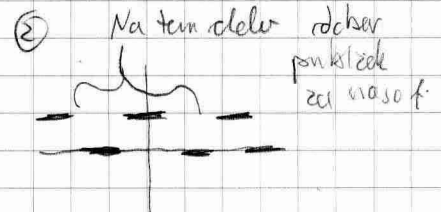 ② Na tem delu dober
približek
za našo f.